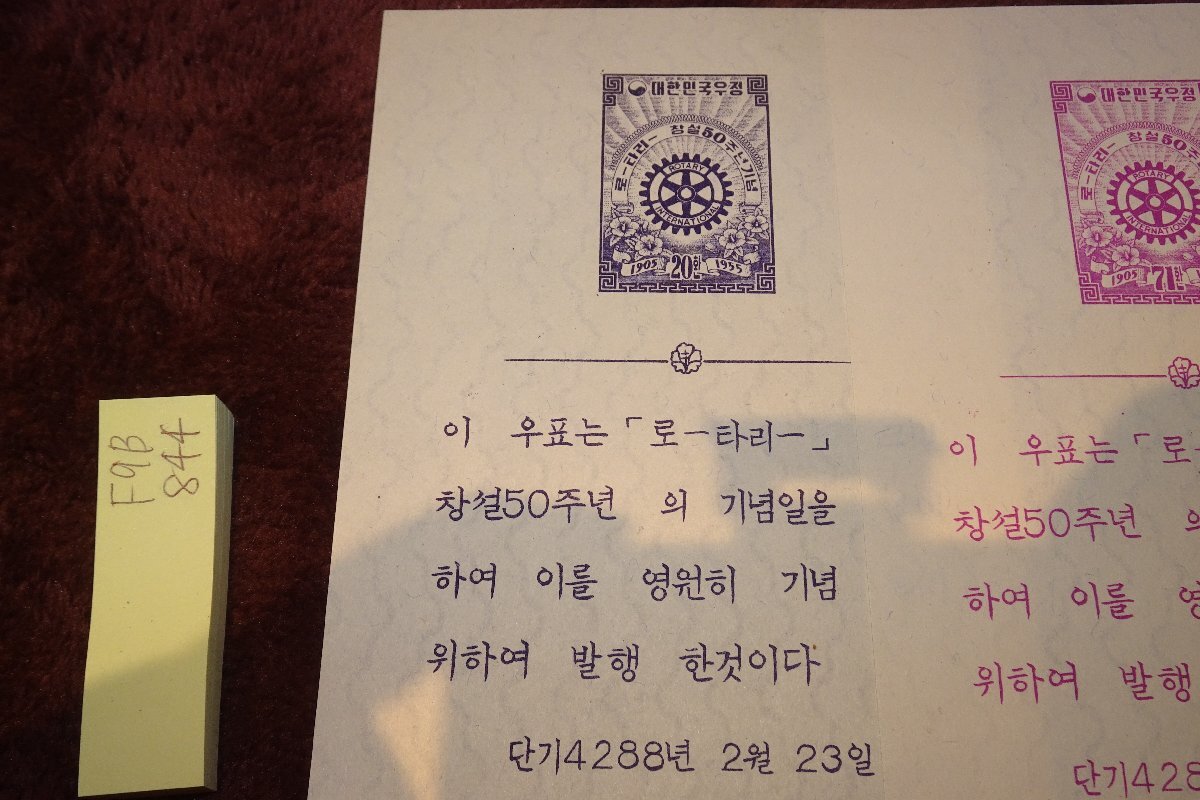 대한민국우정
로-타리- 창설50주년기념
ROTARY
INTERNATIONAL
1905 20환 1955
이 우표는「로-타리-」
창설50주년 의 기념일을
하여 이를 영원히 기념
위하여 발행 한것이다
단기4288년 2월 23일
대한민국우정
로-타리- 창설50주
ROTARY
INTERNATIONAL
1905 71환
이 우표는「로-
창설50주년
하여 이를
위하여 발행
단기428
F9B
844